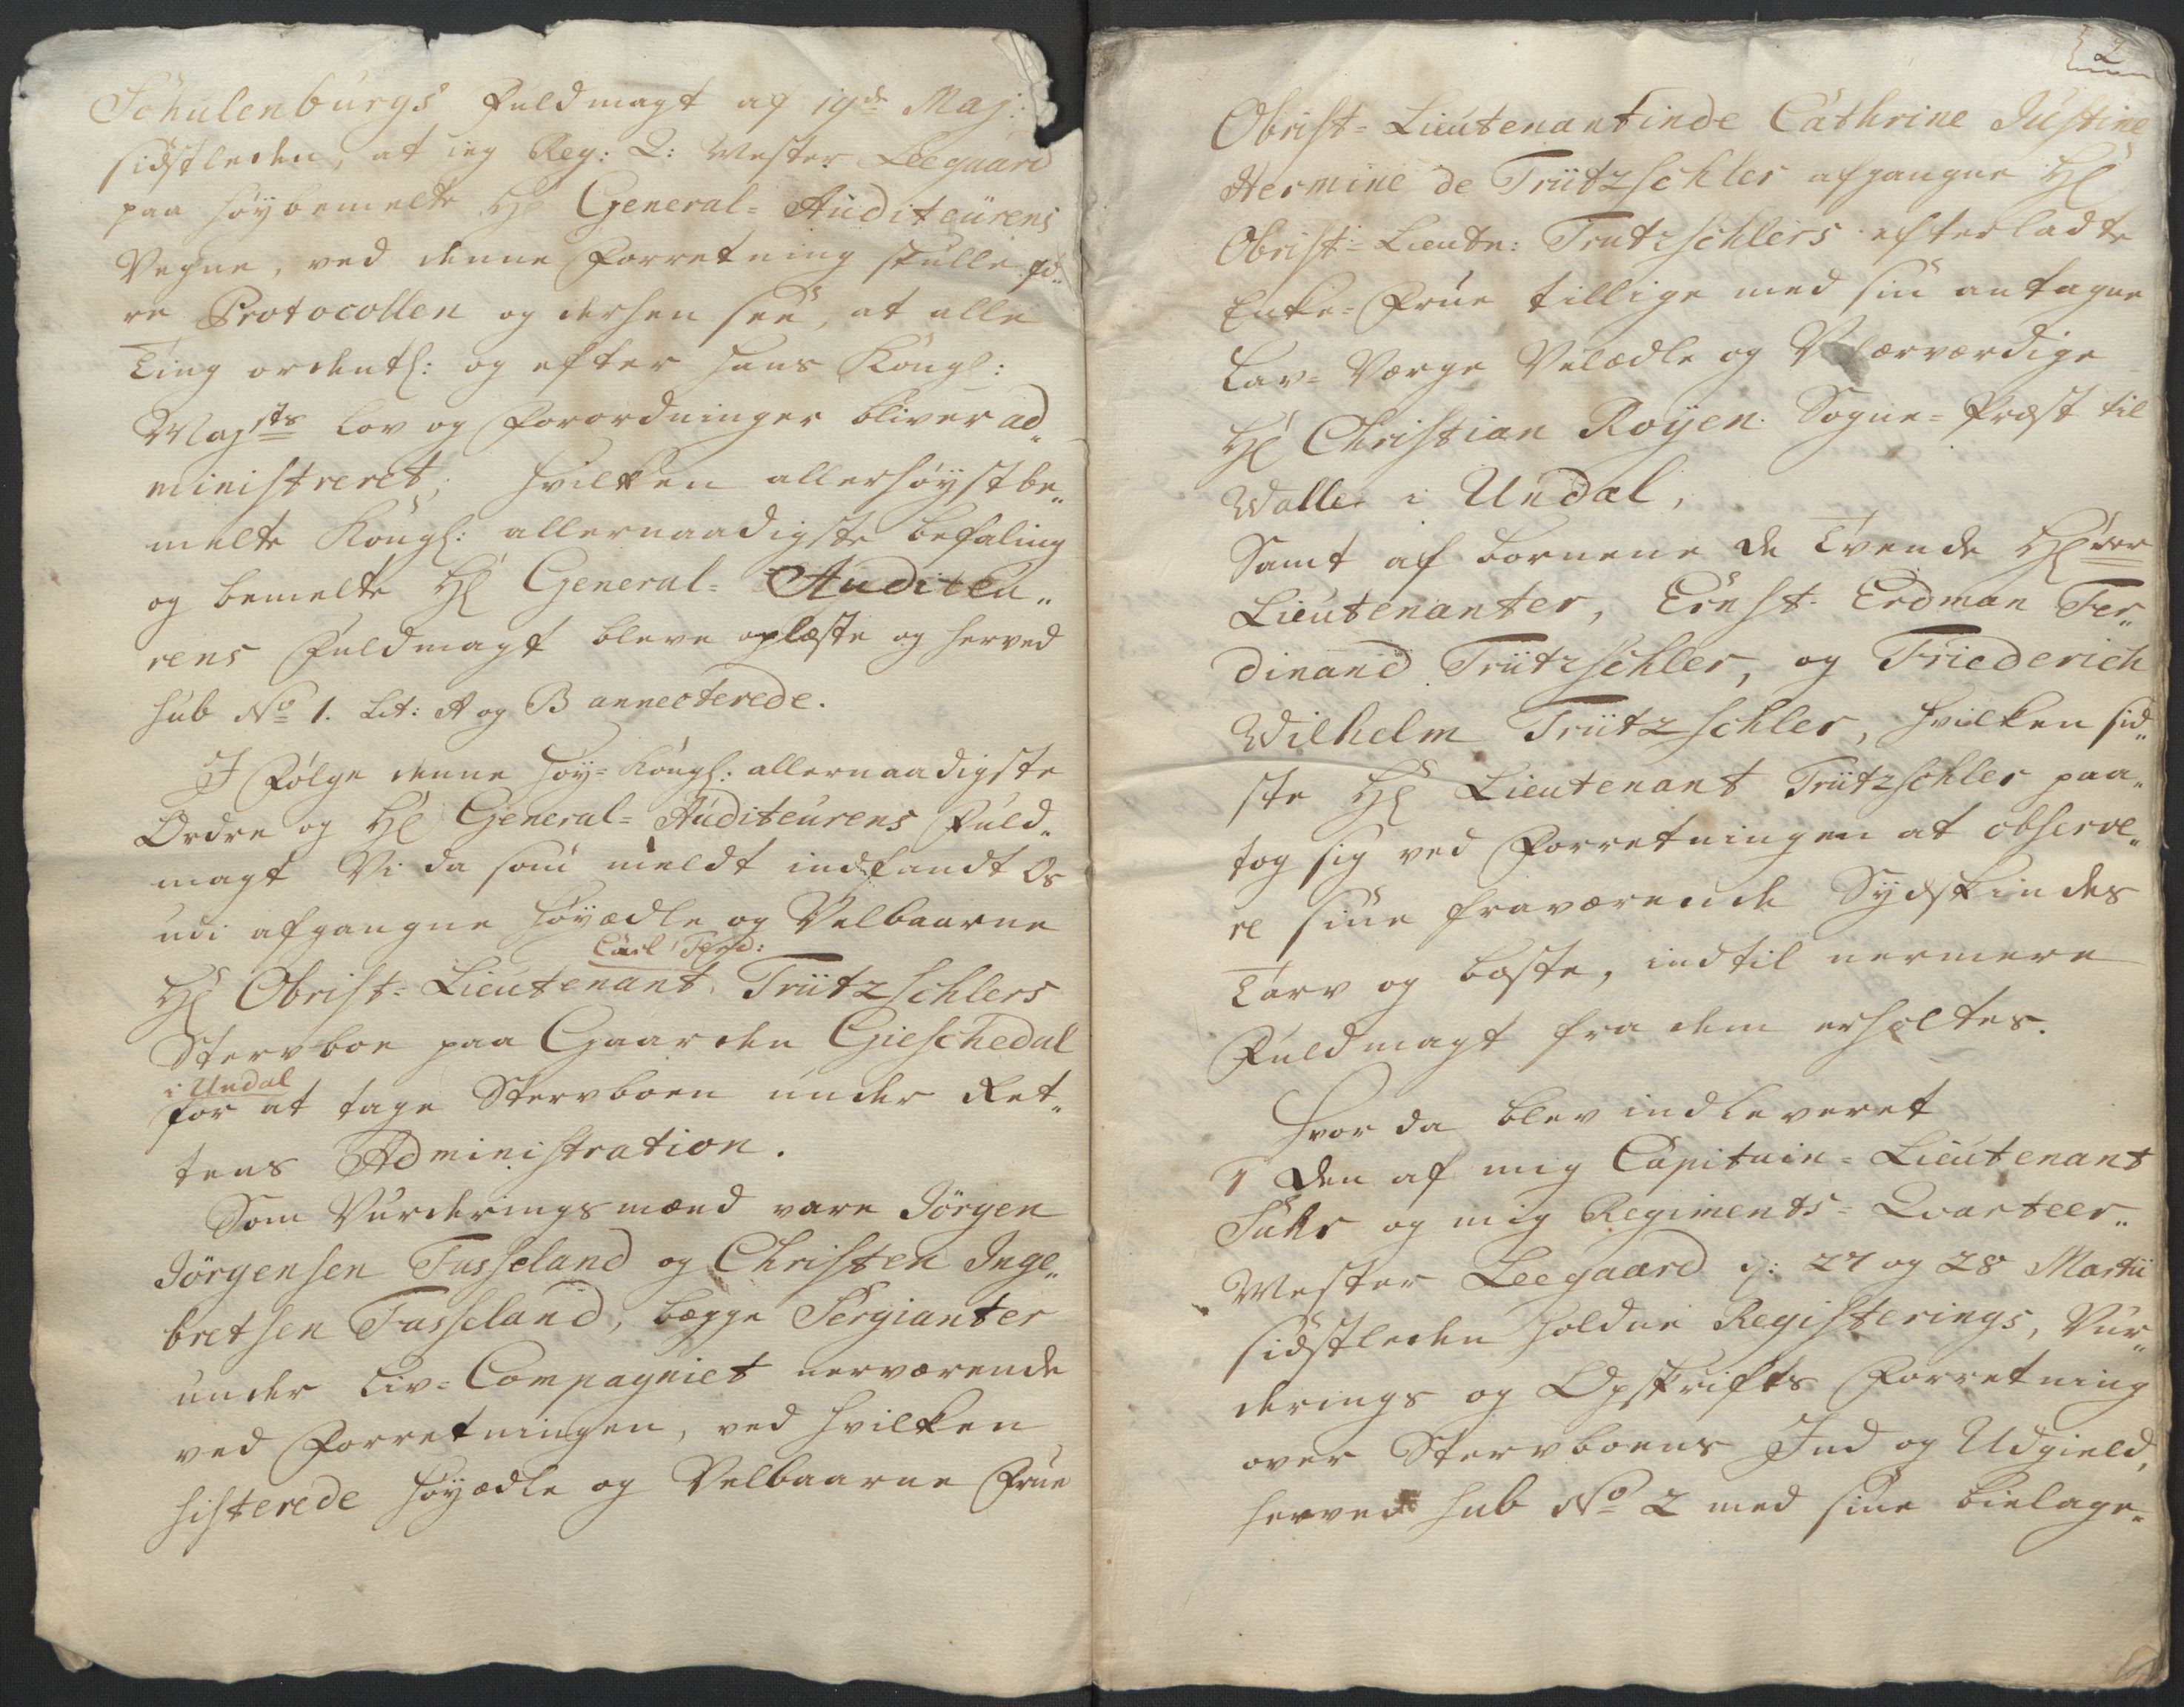 Schulenburgs Fuldmagt af 19de Maj:
sidstleden, at ieg Reg: Q: Mester Leegaard
paa høybemelte Hr General-Auditeürens
Vegne, ved denne Forretning skulle fø-
re Protocollen og derhen see, at alle
Ting ordentl: og efter hans Kongl:
Majsts Lov og Forordninger bliver ad-
ministreret; hvilken allerhøystbe-
melte Kongl: allernaadigste befaling
og bemelte Hr General-Auditeu-
rens Fuldmagt bleve oplæste og herved
sub No 1. Lit: A og B annecterede.
I Følge denne høy-Kongl: allernaadigste
Ordre og Hr General-Auditeurens Fuld-
magt Vi da som meldt indfandt Os
udi afgangne Høyædle og Velbaarne
Carl Ferd:
Hr Obrist-Lieutenant Trützschlers
Stervboe paa Gaarden Gieschedal
i Undal
for at tage Stervboen under Ret-
tens Administration.
Som Vurderingsmænd vare Jörgen
Jörgensen Fusseland og Christen Inge-
bretsen Fusseland, begge Sergianter
under Liv-Compagniet nerværende
ved Forretningen, ved hvilken
sisterede Høyædle og Velbaarne Frue
2
Obrist-Lieutenantinde Cathrine Justine
Hermine de Trützschler afgangne Hr
Obrist-Lieutn: Trutzschlers efterladte
Enke-Frue tillige med sin antagne
Lav-Værge Velædle og Velærværdige
Hr Christian Roÿen Sogne-Præst til
Walle i Undal,
Samt af børnene de Tvende Hrrer
Lieutenanter, Ernst Erdman Fer-
dinand Trützschler, og Friederich
Wilhelm Trützschler, hvilken sid-
ste Hr Lieutenant Trützschler paa-
tog sig ved Forretningen at observe-
re sine fraværende Sydskindes
Tarv og bæste, indtil nermere
Fuldmagt fra dem erholtes.
Hvor da blev indleveret
1 Den af mig Capitain-Lieutenant
Suhr og mig Regiments-Qvarteer-
Mester Leegaard d: 27 og 28 Martii
sidstleden holdne Registerings, Vur-
derings og Opskrifts Forretning
over Stervboens Ind og Udgield,
herved sub No 2 med sine bielage-